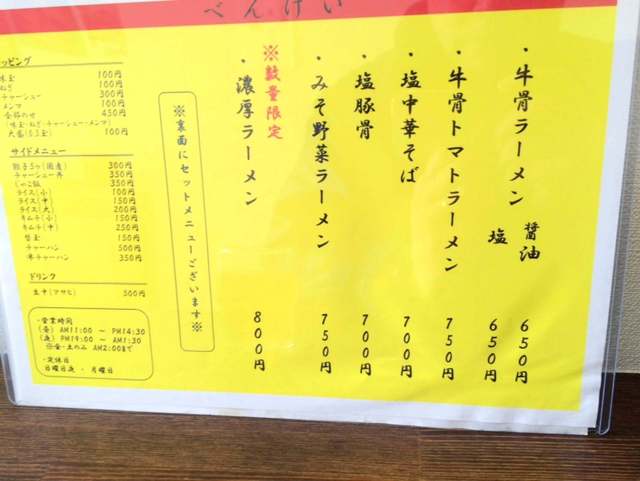 べんけい
・牛骨ラーメン 醤油 650円
塩 650円
・牛骨トマトラーメン 750円
・塩中華そば 700円
・塩豚骨 700円
・みそ野菜ラーメン 750円
※数量限定
・濃厚ラーメン 800円
※裏面にセットメニューございます※
ッピング
味玉 100円
ねぎ 100円
チャーシュー 300円
メンマ 100円
全部のせ 450円
(味玉・ねぎ・チャーシュー・メンマ)
大盛(1.5玉) 100円
サイドメニュー
餃子5ヶ(国産) 300円
チャーシュー丼 350円
じゃこ飯 350円
ライス(小) 100円
ライス(中) 150円
ライス(大) 200円
キムチ(小) 150円
キムチ(中) 250円
替玉 150円
チャーハン 500円
半チャーハン 350円
ドリンク
生中(アサヒ) 500円
・営業時間
(昼) AM11:00 ～ PM14:30
(夜) PM19:00 ～ AM1:30
※金・土のみ AM2:00まで
・定休日
日曜日夜・月曜日